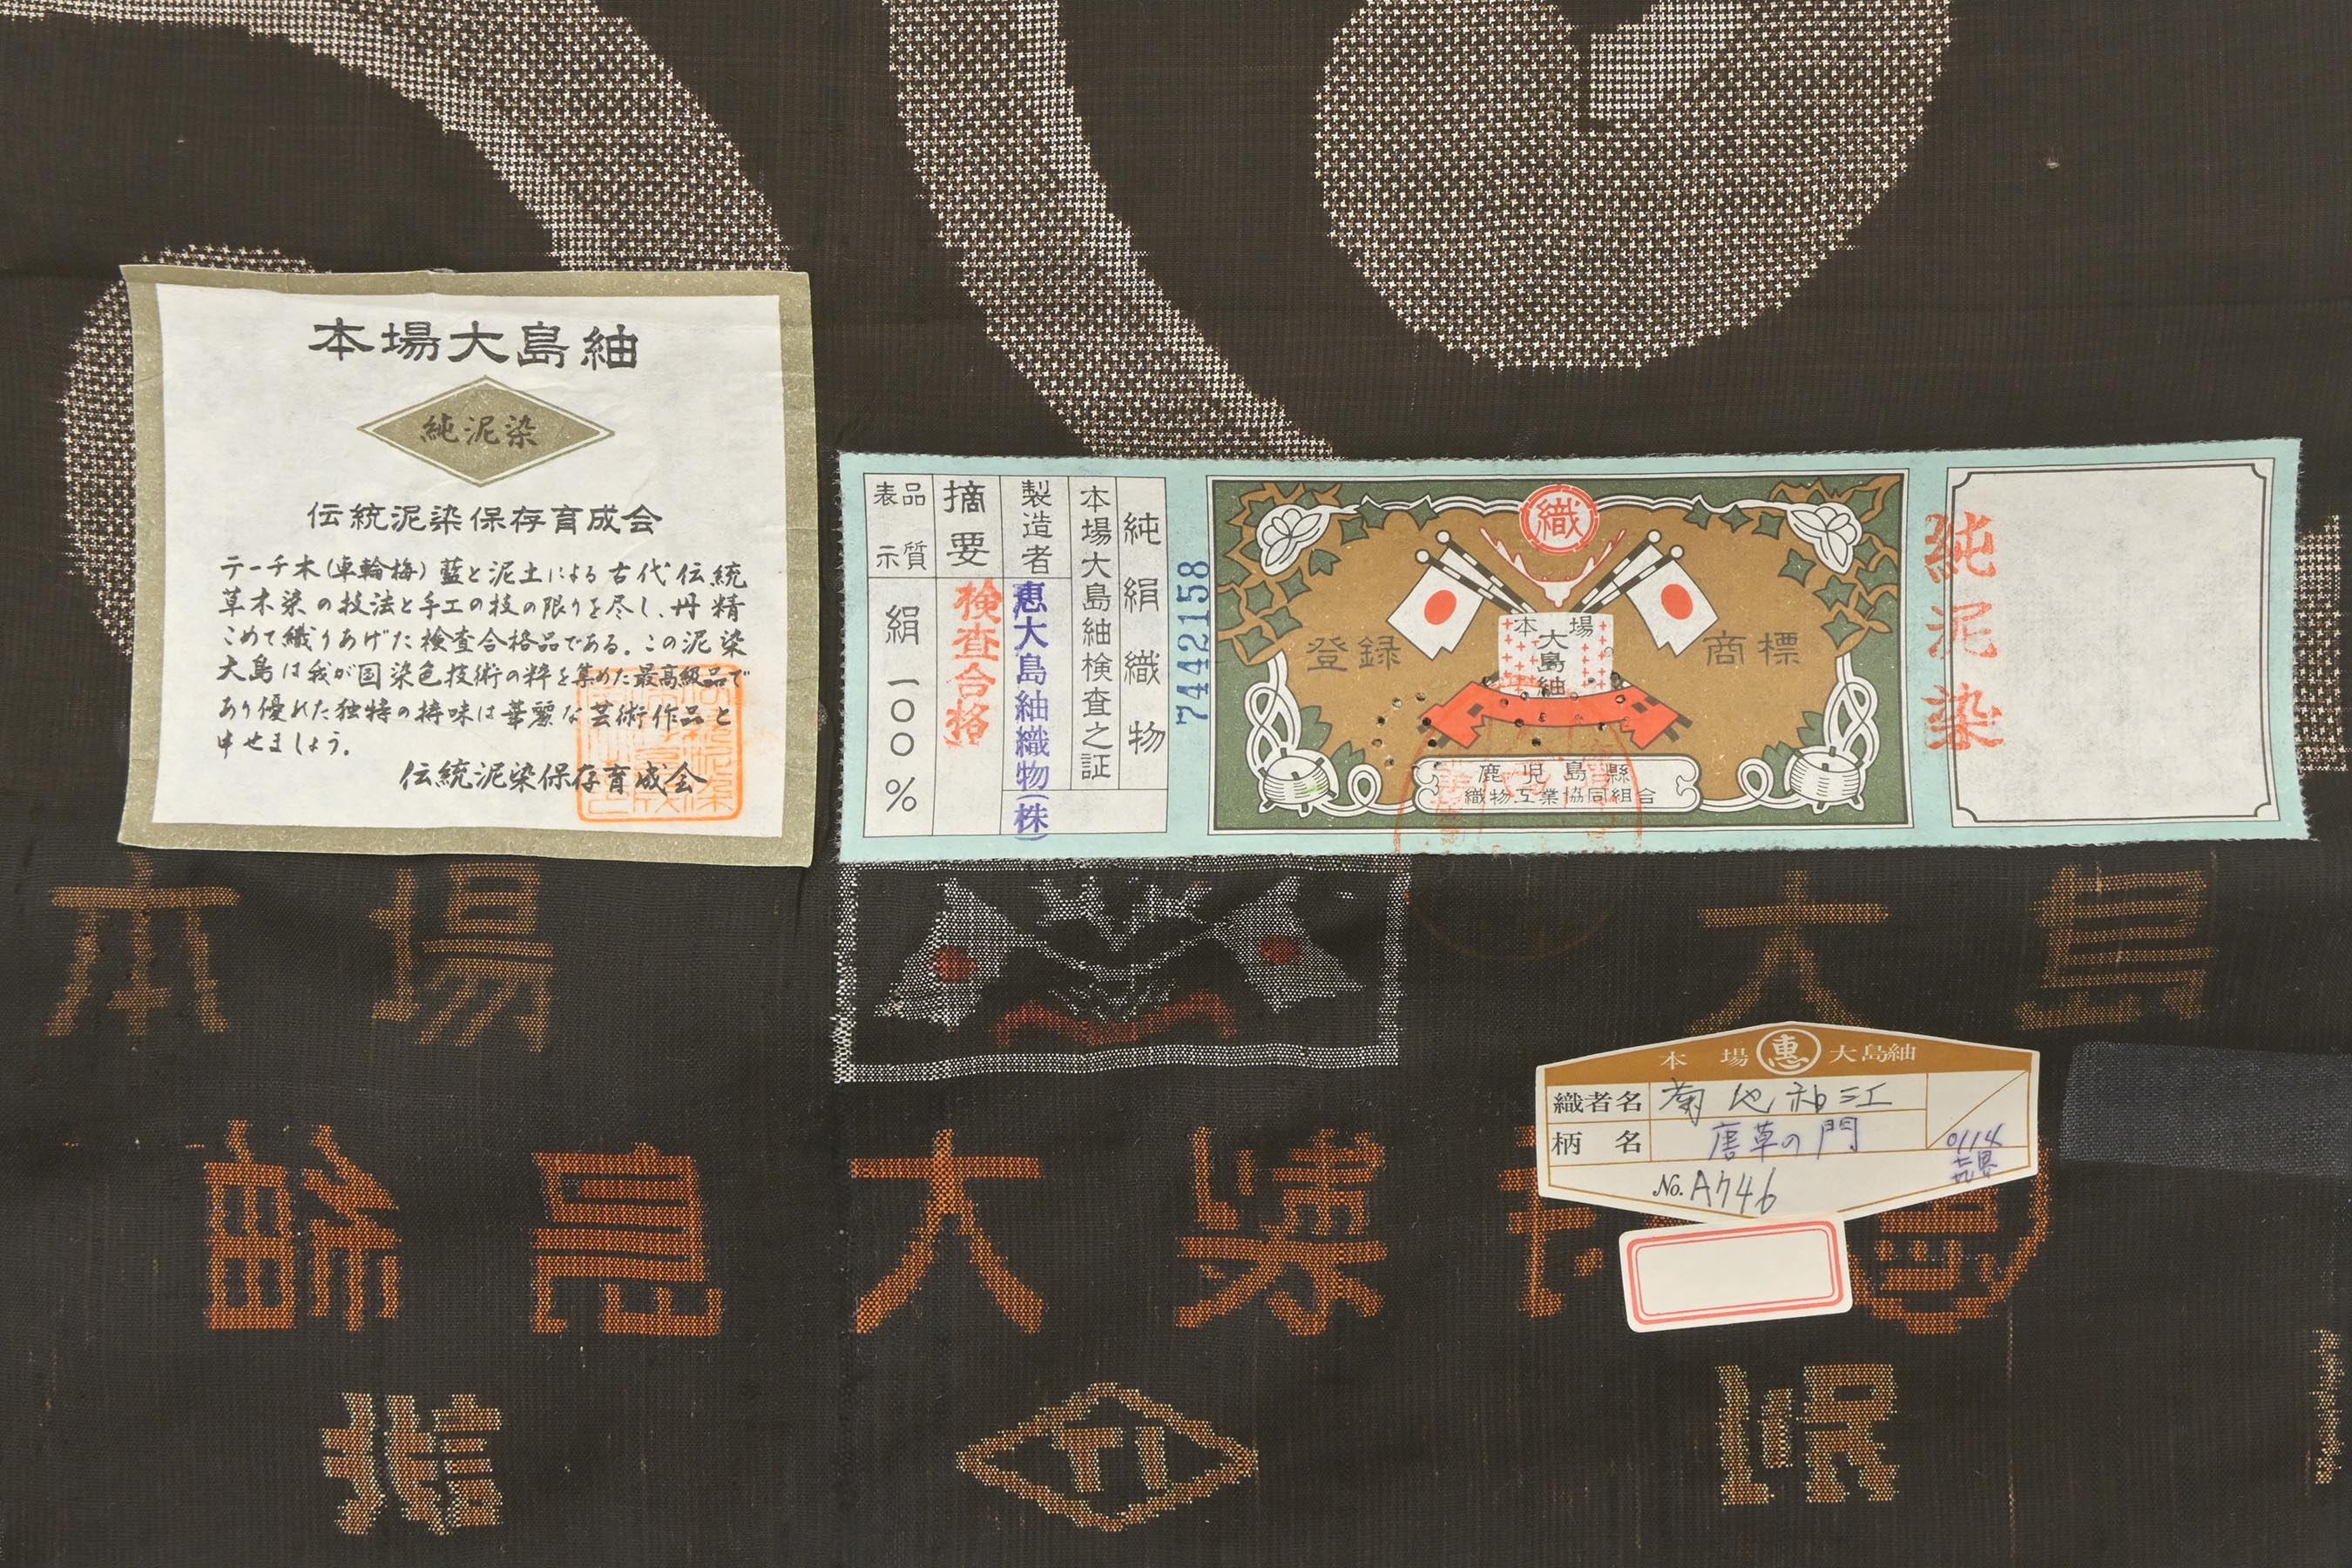 本場大島紬
純泥染
伝統泥染保存育成会
テーチ木(車輪梅)藍と泥土による古代伝統
草木染の技法と手工の技の限りを尽し、丹精
こめて織りあげた検査合格品である。この泥染
大島は我が国染色技術の粋を集めた最高級品で
あり優れた独特の持味は華麗な芸術作品と
申せましょう。
伝統泥染保存育成会
純絹織物
本場大島紬検査之証
製造者
恵大島紬織物(株)
摘要
検査合格
品質
表示
絹一〇〇%
7442158
織
登録
商標
本場
大島
紬
鹿児島縣
織物工業協同組合
純泥染
本場
大島
本場
恵
大島紬
織者名
菊地袖江
柄名
唐草の門
No. A746
0114
紬
島
大